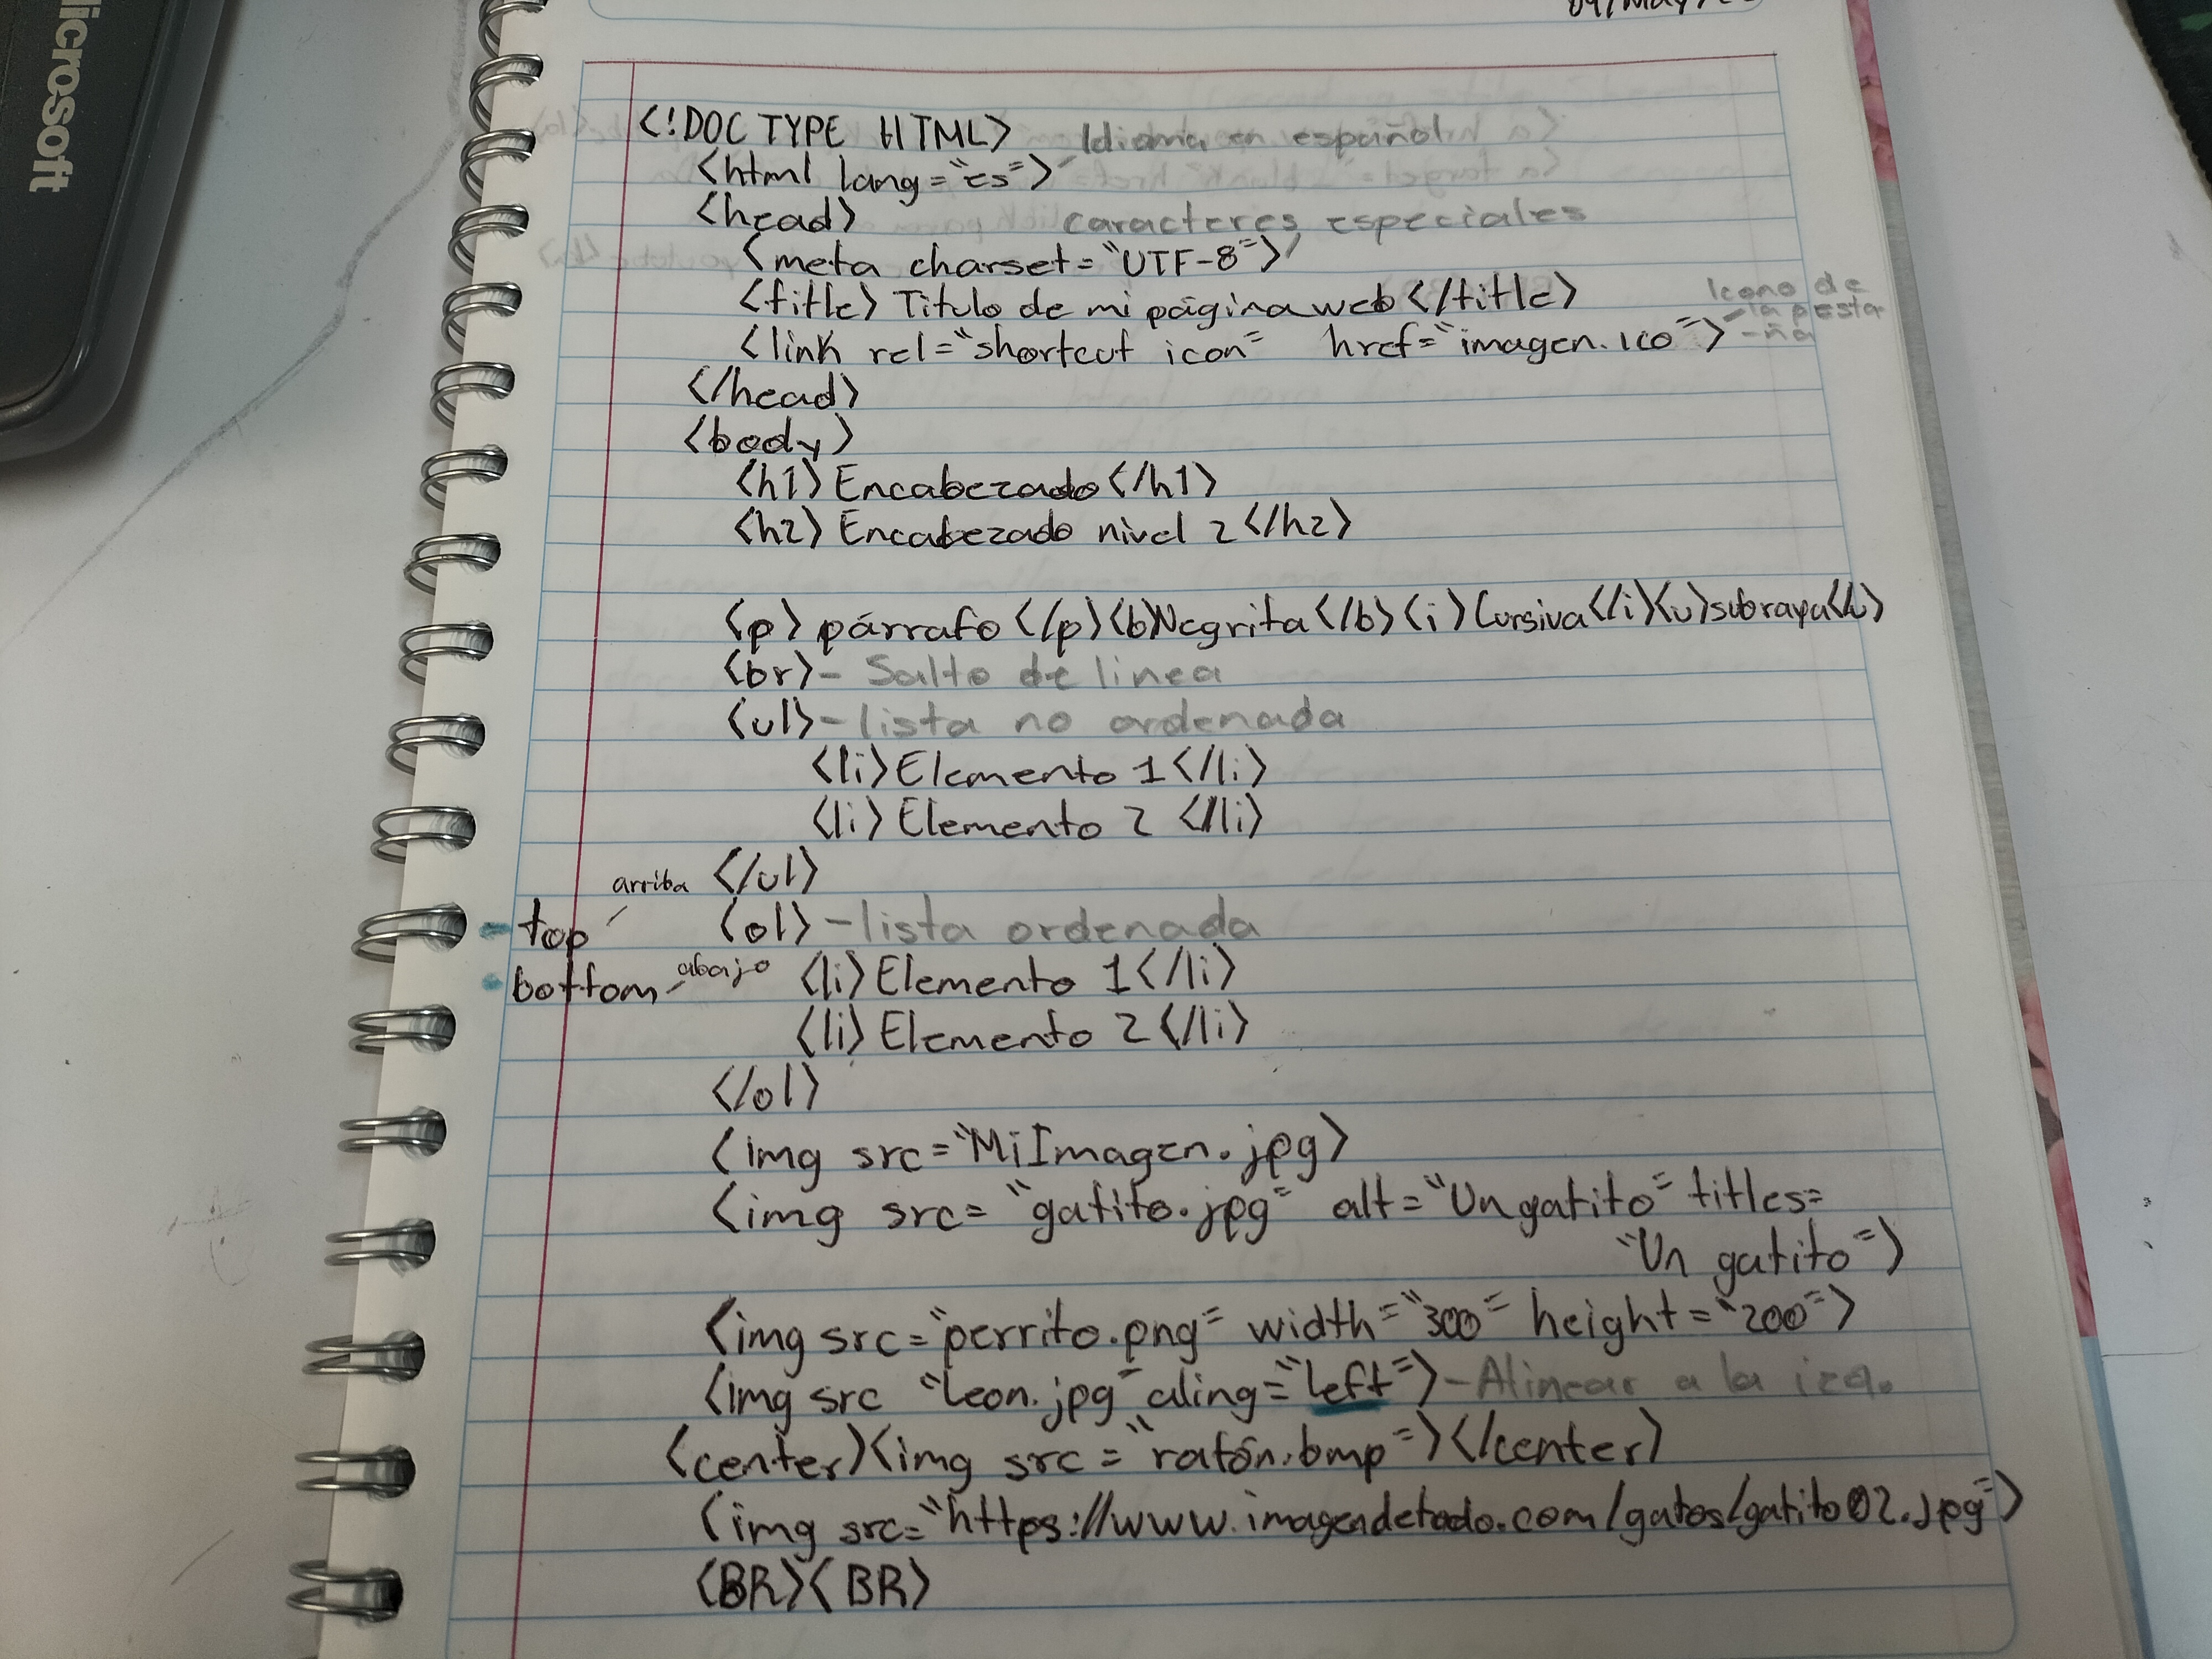 Microsoft
<!DOCTYPE HTML>
Idioma en español
<html lang="es">
<head>
caracteres especiales
<meta charset="UTF-8">
<title> Titulo de mi página web </title>
Icono de
la pesta
-ña
<link rel="shortcut icon" href="imagen.ico">
</head>
<body>
<h1>Encabezado</h1>
<h2>Encabezado nivel 2</h2>
<p> párrafo </p><b>Negrita</b><i>Cursiva</i><u>subraya</u>
<br>- Salto de linea
<ul>-lista no ordenada
<li>Elemento 1</li>
<li>Elemento 2 </li>
</ul>
arriba
- top
<ol>-lista ordenada
- bottom - abajo
<li>Elemento 1</li>
<li>Elemento 2</li>
</ol>
<img src="MiImagen.jpg>
<img src= "gatito.jpg" alt="Un gatito" titles=
"Un gatito">
<img src="perrito.png" width="300" height="200">
<img src "leon.jpg" aling="left">-Alinear a la izq.
<center><img src="ratón.bmp"></center>
<img src="https://www.imagendetodo.com/gatos/gatito02.jpg">
<BR><BR>